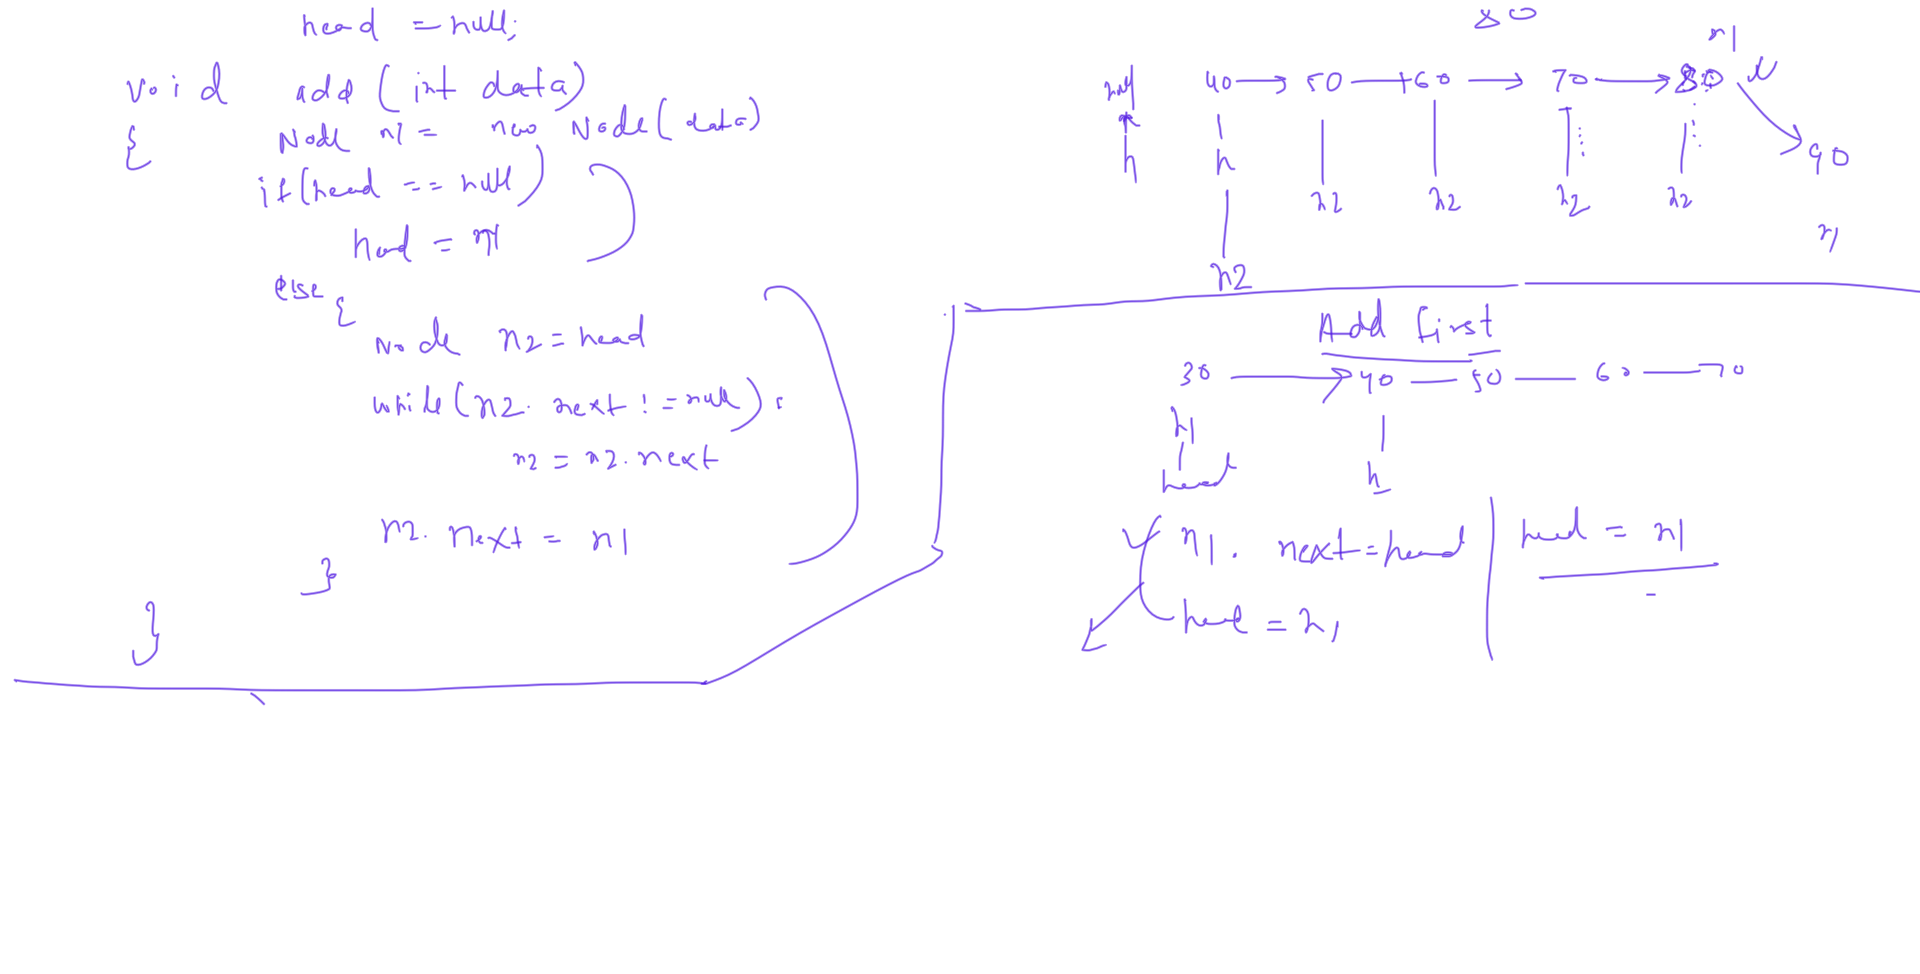 head = null;
void add (int data)
{ Node n1 = new Node(data)
if(head == null)
head = n1
else {
Node n2 = head
while(n2.next != null)
n2 = n2.next
n2.next = n1
}
}
80
n1
null 40 → 50 → 60 → 70 → 80
h h 90
n2 n2 n2 n2
n1
n2
Add first
30 → 40 — 50 — 60 — 70
n1
head h
n1.next = head head = n1
head = n1